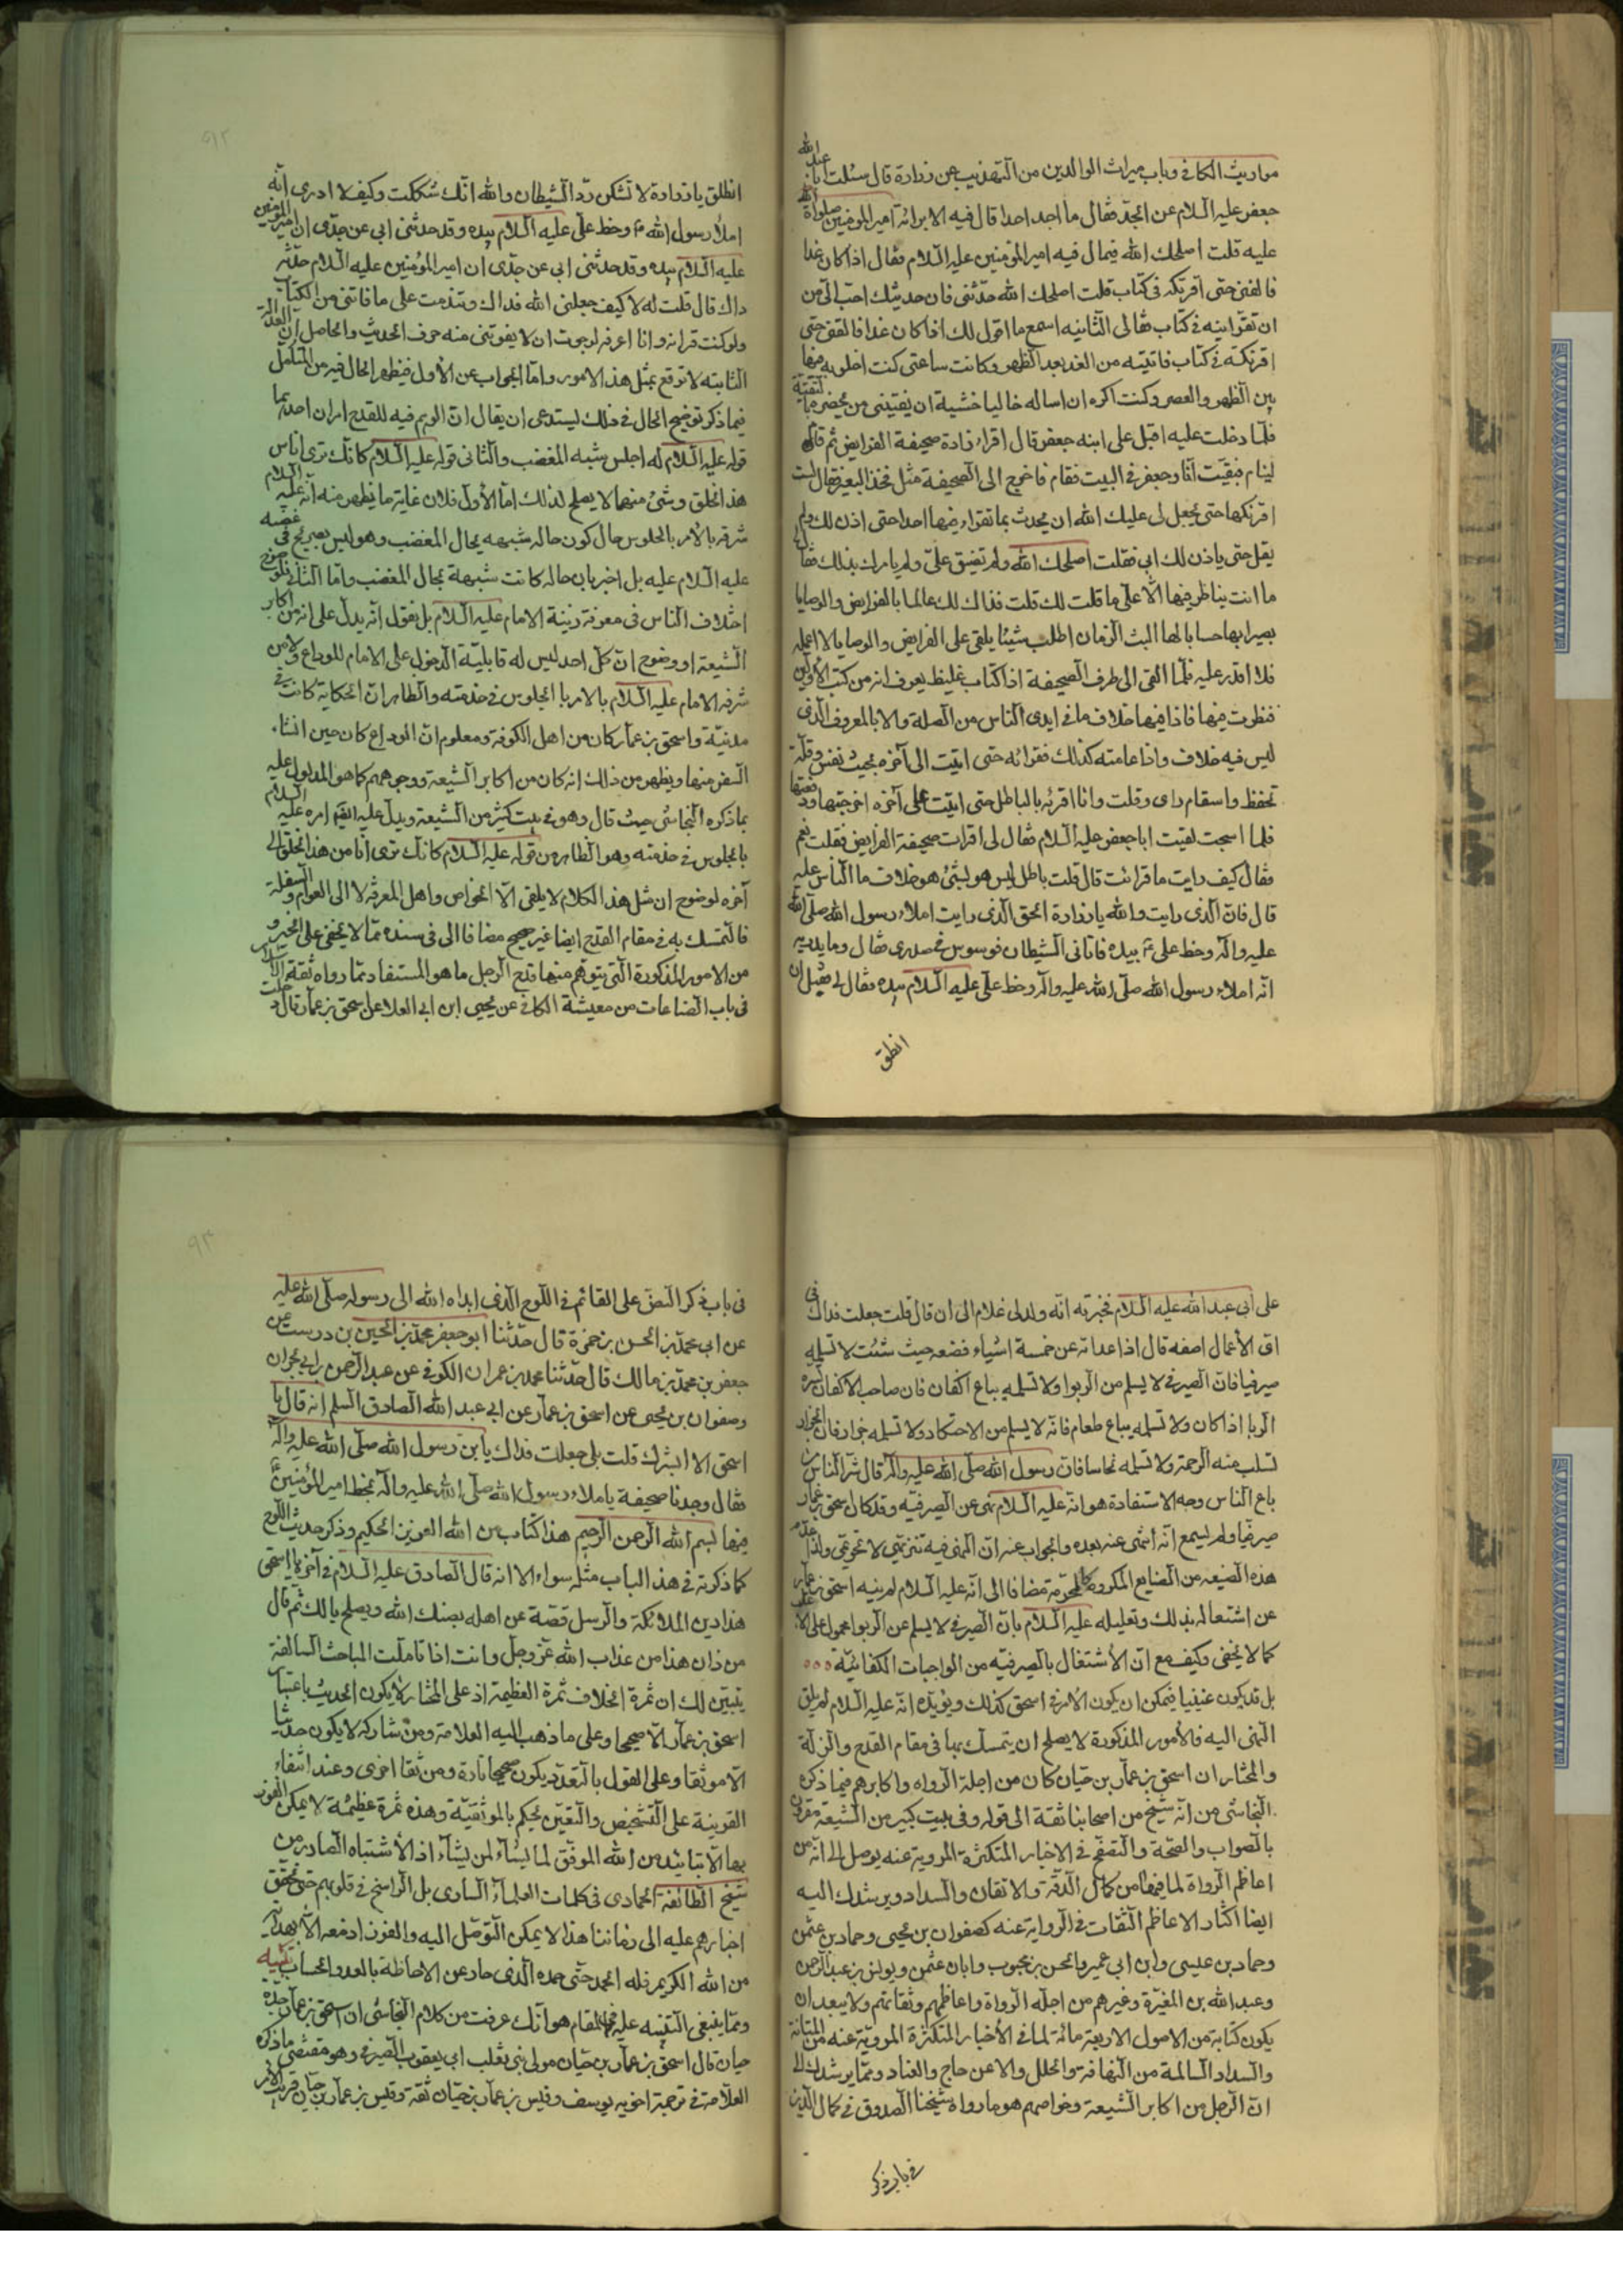 مواريث الكافي وباب ميراث الوالدين من التهذيب عن زرارة قال سئلت ابا عبد الله
جعفر عليه السلام عن الجد فقال ما اجد احدا قال فيه الا برائه امير المؤمنين صلوات الله
عليه قلت اصلحك الله فما قال فيه امير المؤمنين عليه السلام فقال اذا كان غدا
فالقنى حتى اقرئكه في كتاب قلت اصلحك الله حدثنى فان حديثك احب الى من
ان تقرأينه في كتاب فقال لى الثانيه اسمع ما اقول لك اذا كان غدا فالقنى حتى
اقرئكه في كتاب فاتيته من الغد بعد الظهر وكانت ساعتى كنت اخلو به فيها
بين الظهر والعصر وكنت اكره ان اساله خاليا خشية ان يفتينى من يحضره بالتقية
فلما دخلت عليه اقبل على ابنه جعفر قال اقراء زرارة صحيفة الفرايض ثم قام
لينام فبقيت انا وجعفر في البيت فقام فاخرج الى الصحيفة مثل فخذ البعير فقال لست
اقرئكها حتى تجعل لى عليك الله ان لا يحدث بما تقراء فيها احدا حتى اذن لك ولم
يقل حتى ياذن لك ابى فقلت اصلحك الله ولم تضيق على ولم يامرك بذلك فقال
ما انت بناظر فيها الا على ما قلت لك قلت فذاك لك عالما بالفرايض والوصايا
بصيرا بها حسابا لها البث الزمان اطلب شيئا يلقى على الفرايض والوصايا لا اعلمه
فلا اقدر عليه فلما القى الى طرف الصحيفة اذا كتاب غليظ يعرف انه من كتب الاولين
فنظرت فيها فاذا فيها خلاف ما في ايدى الناس من الصلة والا بالمعروف الذى
ليس فيه خلاف واذا عامته كذلك فقرائه حتى اتيت الى آخره بخبث نفس وقلة
تحفظ واسقام راى وقلت وانا اقرئه باطل حتى اتيت على آخره ادرجتها ودفعتها
فلما اصبحت لقيت ابا جعفر عليه السلام فقال لى اقرات صحيفة الفرايض فقلت نعم
فقال كيف رايت ما قرائت قال قلت باطل ليس هو بشئ هو خلاف ما الناس عليه
قال فان الذى رايت والله يا زرارة الحق الذى رايت املاء رسول الله صلى الله
عليه وآله وخط على ع بيده فاتانى الشيطان فوسوس في صدرى فقال وما يدريه
انه املاء رسول الله صلى الله عليه وآله وخط على عليه السلام بيده فقال لى قبل ان
انطق
انطلق يا زرارة لا تشكن ود الشيطان والله انك شككت وكيف لا ادرى انه
املاء رسول الله ص وخط على عليه السلام بيده وقد حدثنى ابى عن جدى ان امير المؤمنين
عليه السلام بيده وقد حدثنى ابى عن جدى ان امير المؤمنين عليه السلام حدثه
ذاك قال قلت له لا كيف جعلنى الله فداك وتندمت على ما فاتنى من الكتاب
ولو كنت قراته وانا اعرفه لرجوت ان لا يفوتنى منه حرف الحديث والحاصل ان العدالة
الثابته لا ترتفع بمثل هذ الامور واما الجواب عن الأول فيظهر الحال فيه من التكامل
فيما ذكر توضيح الحال في ذلك يستدعى ان يقال ان الموهم فيه للقدح امران احدهما
قوله عليه السلام له اجلس شبه المغضب والثانى قوله عليه السلام كانك ترى اناس
هذا الخلق وشئ منهما لا يصلح لذلك اما الأول فلان غاية ما يظهر منه انه عليه السلام
شرفه بالامر بالجلوس حال كون حاله شبيهه بحال المغضب وهو ليس بصريح في غضبه
عليه السلام عليه بل اخبر بان حاله كانت شبيهة بحال المغضب واما الثانى فلوضوح
اختلاف الناس في معرفة رتبة الامام عليه السلام بل نقول انه يدل على انه من اكابر
الشيعة او وضوح ان كل احد ليس له قابلية الدخول على الامام للوداع ولا من
شرفه الامام عليه السلام بالامر با الجلوس في خدمته والظاهر ان الحكاية كانت في
مدنية واسحق بن عمار كان من اهل الكوفة ومعلوم ان الوداع كان حين انشاء
السفر منها ويظهر من ذلك انه كان من اكابر الشيعة ووجوههم كما هو المدلول عليه
بما ذكره النجاشى حيث قال وهو في بيت كثير من الشيعة ويدل عليه ايضا امره عليه السلام
بالجلوس في خدمته وهو الظاهر من قوله عليه السلام كانك ترى انا من هذا الخلق الى
آخره لوضوح ان مثل هذ الكلام لا يلقى الا الخواص واهل المعرفة لا الى العوام والسفلة
فالتمسك به في مقام القدح ايضا غير صحيح مضافا الى في سنده مما لا يخفى على الخبير و
من الامور المذكورة التى يتوهم منها قدح الرجل ما هو المستفاد مما رواه ثقة الاسلام
في باب الصناعات من معيشة الكافي عن يحيى ابن ابى العلا عن اسحق بن عمار قال دخلت
على ابى عبد الله عليه السلام فخبرته انه ولد لى غلام الى ان قال قلت جعلت فداك في
اى الأعمال اضعه قال اذا عداته عن خمسة اشياء فضعه حيث شئت لا تسلمه
صيرفيا فان الصيرفي لا يسلم من الربوا ولا تسلمه بياع اكفان فان صاحب الاكفان يسره
الوبا اذا كان ولا تسلمه بياع طعام فانه لا يسلم من الاحتكار ولا تسلمه جزارا فان الجزار
تسلب منه الرحمة ولا تسلمه نخاسا فان رسول الله صلى الله عليه وآله قال شر الناس من
باع الناس وجه الاستفادة هو انه عليه السلام نهى عن الصرفية وقد كان اسحق بن عمار
صيرفيا ولم يسمع انه انتهى عنه بعده والجواب عنه ان النهى فيه تنزيهى لا تحريمى ولذا عد
هذه الصنيعه من الصنايع المكروهة لا المحرمة مضافا الى انه عليه السلام لم ينبه اسحق بن عمار
عن اشتغاله بذلك وتعليله عليه السلام بان الصيرفي لا يسلم عن الربوا محمول على
كما لا يخفى وكيف مع ان الأشتغال بالصيرفية من الواجبات الكفائية
بل قد يكون عينيا فيمكن ان يكون الامر في اسحق كذلك ويؤيده انه عليه السلام لم يلق
النهى اليه فالأمور المذكورة لا يصلح ان يتمسك بها في مقام القدح والزلة
والمختار ان اسحق بن عمار بن حيان كان من اجلة الرواه واكابرهم فيما ذكره
النجاشى من انه شيخ من اصحابنا ثقة الى قوله وفي بيت كبير من الشيعة مقرون
بالصواب والصحة والتفحص في الاخبار المتكثرة المروية عنه يوصل الى انه من
اعاظم الرواة لما فيها من كمال الدقة والاتقان والسداد ويرشدك اليه
ايضا اكثار الاعاظم الثقات في الرواية عنه كصفوان بن يحيى وحماد بن عثمن
وحماد بن عيسى وابن ابى عمير والحسن بن محبوب وابان عثمن ويونس بن عبد الرحمن
وعبد الله بن المغيرة وغيرهم من اجله الرواة واعاظمهم وثقاتهم ولا يبعد ان
يكون كتابة من الاصول الاربعة مائة لما في الأخبار المتكثرة المروية عنه من المتانة
والسداد السالمة من التهافة والخلل والاعن حاج والعناد ومما يرشدك الى
ان الرجل من اكابر الشيعة وخواصهم هو ما رواه شيخنا الصدوق في كمال الدين
في باب ذكر
في باب ذكر النص على القائم في اللوح الذى ابداه الله الى رسوله صلى الله عليه
عن ابى محمد بن الحسن بن حمزة قال حدثنا ابو جعفر محمد بن الحسين بن درست عن
جعفر بن محمد بن مالك قال حدثنا محمد بن عمران الكوفي عن عبد الرحمن بن ابى نجران
وصفوان بن يحيى عن اسحق بن عمار عن ابى عبد الله الصادق السلم انه قال يا
اسحق الا ابشرك قلت بلى جعلت فداك يا بن رسول الله صلى الله عليه وآله
فقال وجدنا صحيفة باملاء رسول الله صلى الله عليه وآله بخط امير المؤمنين ع
فيها بسم الله الرحمن الرحيم هذا كتاب من الله العزيز الحكيم وذكر حديث اللوح
كما ذكرته في هذ الباب مثله سواء الا انه قال الصادق عليه السلام في آخره يا اسحق
هذا دين الملائكة والرسل فصنه عن اهله يصنك الله ويصلح بالك ثم قال
من دان هذا من عذاب الله عز وجل وانت اذا تاملت المباحث السالفة
يتبين لك ان ثمرة الخلاف ثمرة العظيمة اذ على المختار لا يكون الحديث باعتبار
اسحق بن عمار الا صحيحا وعلى ما ذهب اليه العلامة ومن شاركه لا يكون حديثا
الا موثقا وعلى القول بالتعدد يكون صحيحا تارة وموثقا اخرى وعند انتفاء
القرينة على التشخيص والتعين يحكم بالموثقية وهذه ثمرة عظيمة لا يمكن الفوز
بها الا بتاييد من الله الموفق لما يشاء لمن يشاء اذ الأشتباه الصادر من
شيخ الطائفة الحمادى في كلمات العلماء السارى بل الراسخ في قلوبهم حتى تحقق
اخبارهم عليه الى زماننا هذا لا يمكن التوصل اليه والفوز ادفعه الا بهداية
من الله الكريم فله الحمد حتى حمده الذى حار عن الاحاطة بالعد والحساب تنبيه
ومما ينبغى التنبيه عليه في المقام هو انك عرفت من كلام النجاشى ان اسحق بن عمار جده
حيان قال اسحق بن عمار بن حيان مولى بنى تغلب ابى يعقوب الصيرفي وهو مقتضى ما ذكره
العلامة في ترجمة اخويه يوسف وقيس بن عمار بن حيان ثقة وقيس بن عمار بن حيان قريب الامر